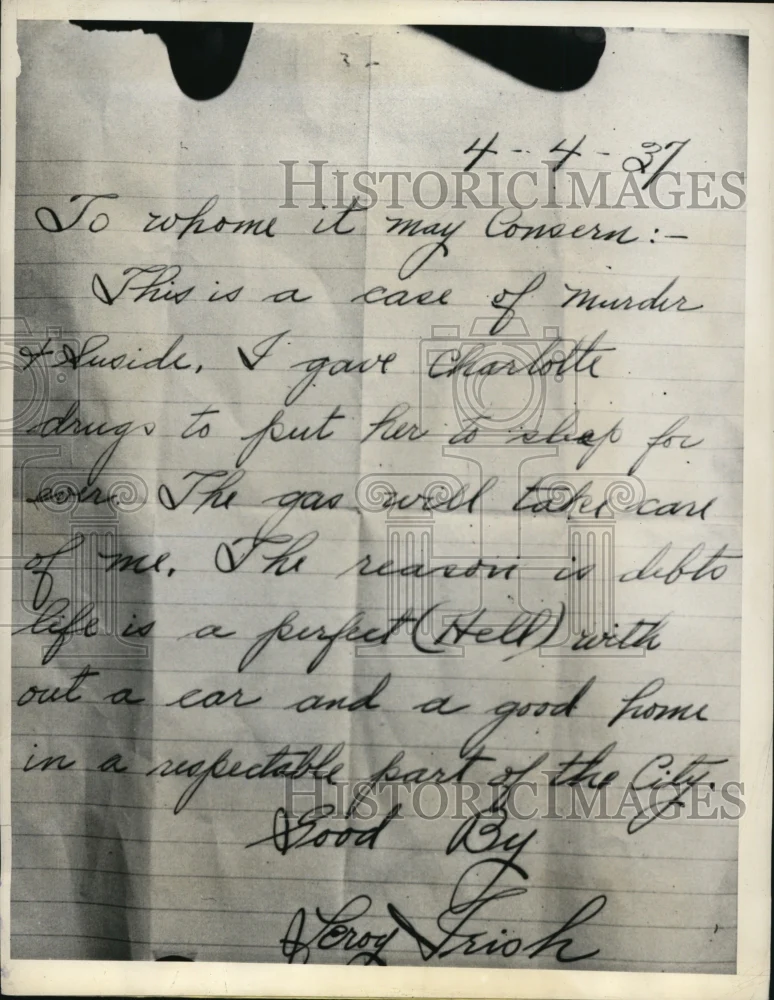 4-4-37
To whome it may Consern:-
This is a case of murder
& Suside. I gave Charlotte
drugs to put her to sleep for
ever. The gas will take care
of me. The reason is debts
life is a perfect (Hell) with
out a car and a good home
in a respectable part of the City.
Good By
Leroy Trish
HISTORICIMAGES
HISTORICIMAGES